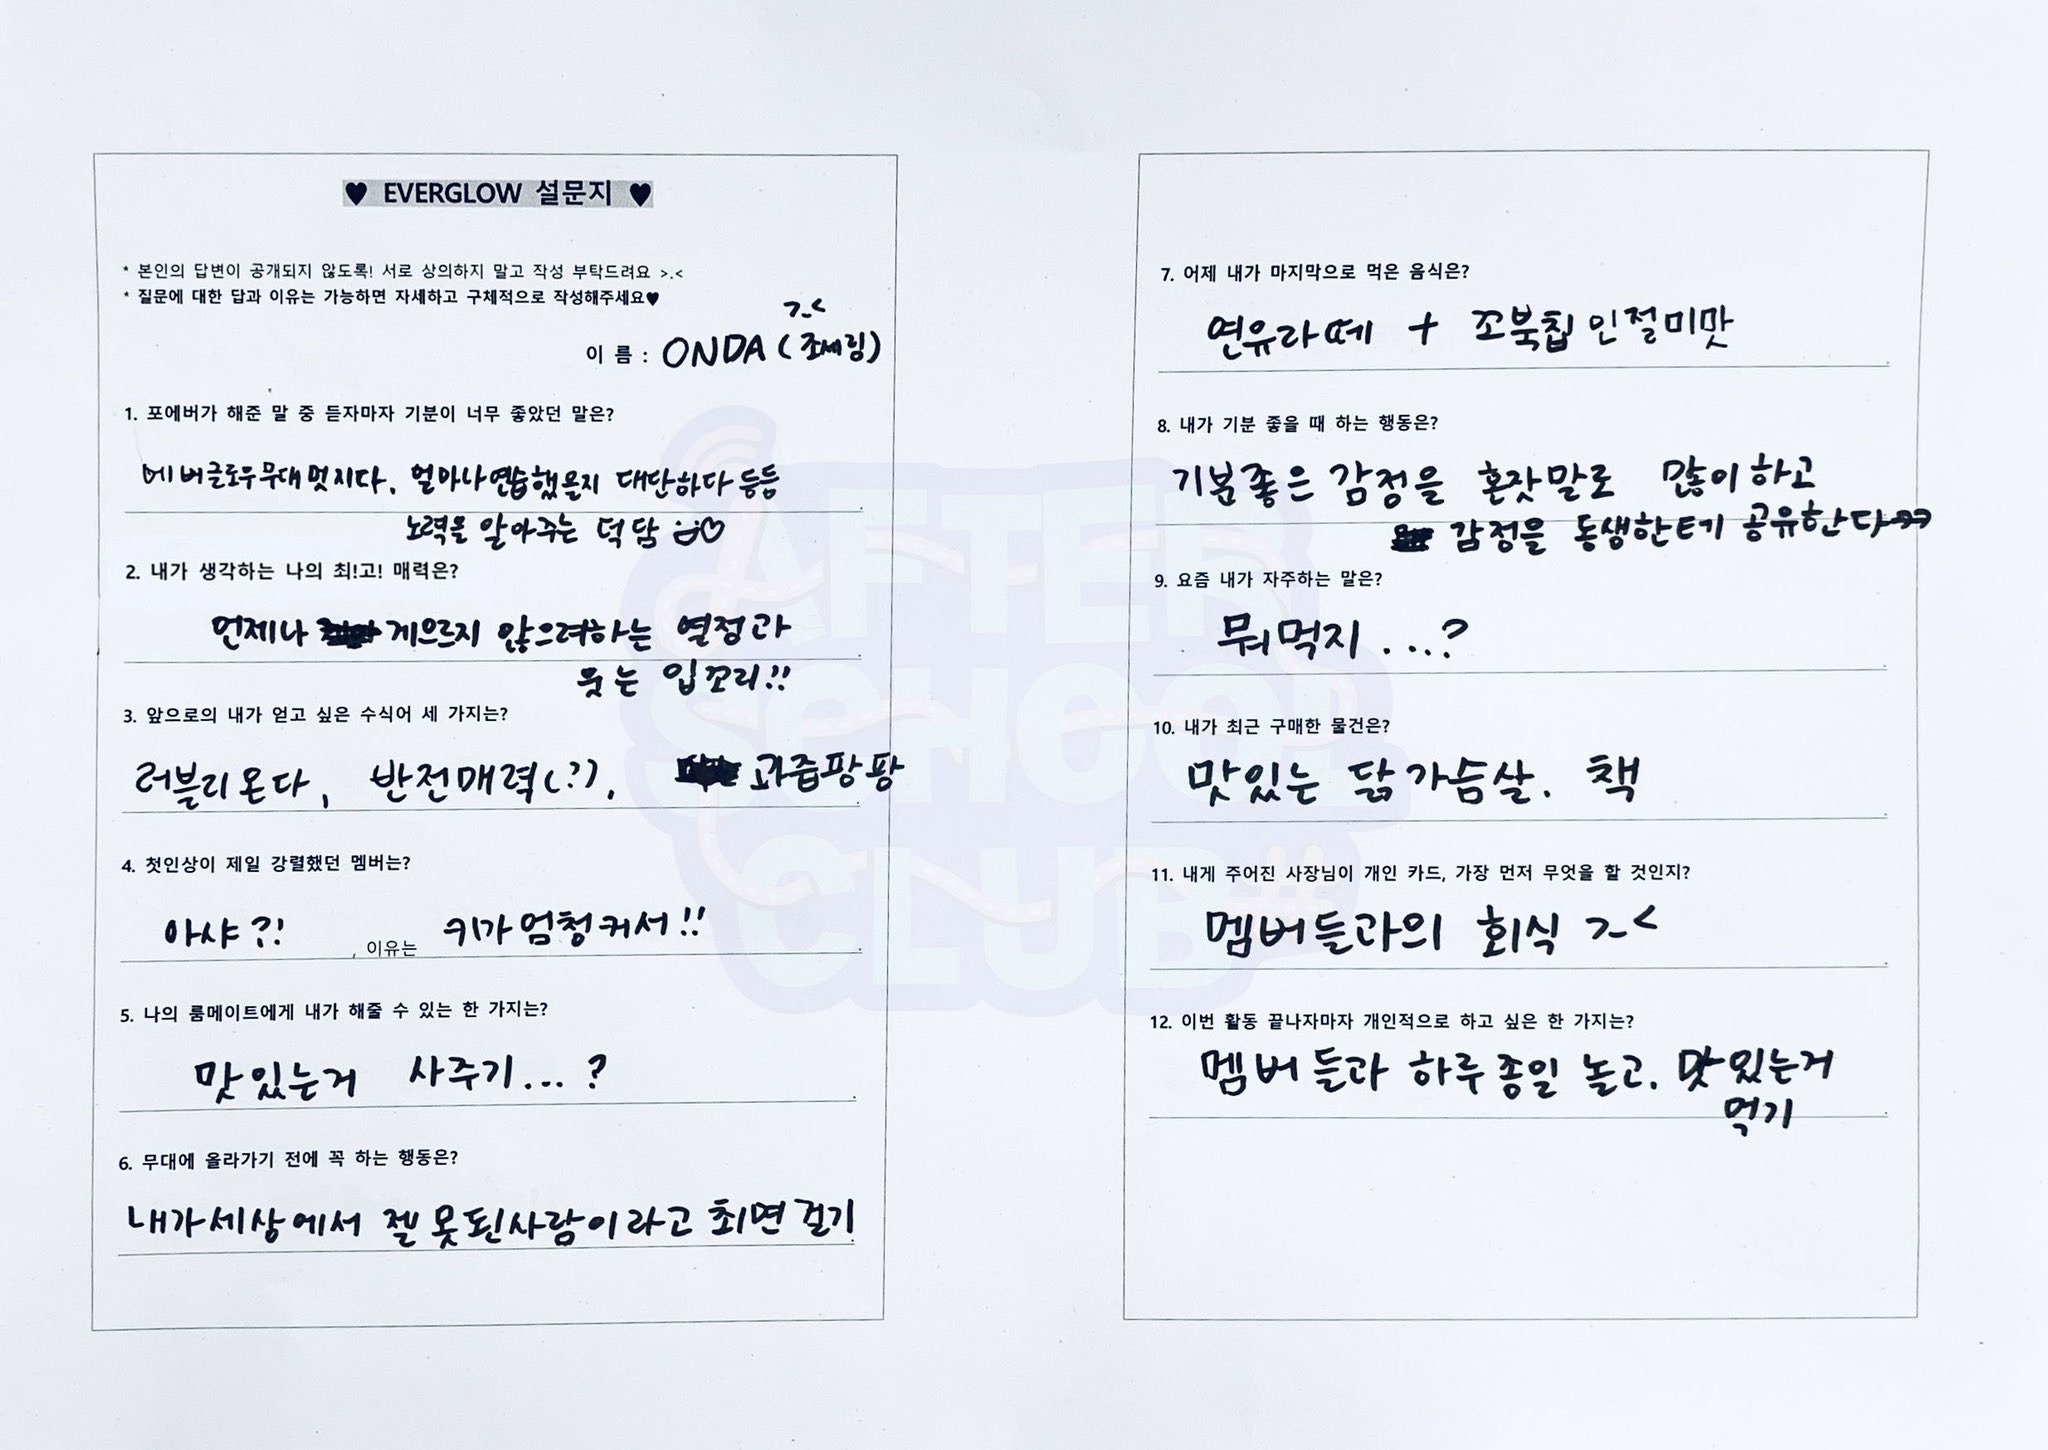 ♥ EVERGLOW 설문지 ♥
* 본인의 답변이 공개되지 않도록! 서로 상의하지 말고 작성 부탁드려요 >.<
* 질문에 대한 답과 이유는 가능하면 자세하고 구체적으로 작성해주세요♥
>_<
이 름 : ONDA (조세림)
1. 포에버가 해준 말 중 듣자마자 기분이 너무 좋았던 말은?
에버글로우 무대 멋지다, 얼마나 연습했을지 대단하다 등등
노력을 알아주는 덕담
2. 내가 생각하는 나의 최!고! 매력은?
언제나 게으르지 않으려하는 열정과
웃는 입꼬리!!
3. 앞으로의 내가 얻고 싶은 수식어 세 가지는?
러블리온다, 반전매력(?), 과즙팡팡
4. 첫인상이 제일 강렬했던 멤버는?
아샤?! , 이유는 키가 엄청 커서!! .
5. 나의 룸메이트에게 내가 해줄 수 있는 한 가지는?
맛있는거 사주기...? .
6. 무대에 올라가기 전에 꼭 하는 행동은?
내가 세상에서 젤 못된사람이라고 최면걸기
7. 어제 내가 마지막으로 먹은 음식은?
연유라떼 + 꼬북칩 인절미맛 .
8. 내가 기분 좋을 때 하는 행동은?
기분좋은 감정을 혼잣말로 많이하고
감정을 동생한테 공유한다
9. 요즘 내가 자주하는 말은?
뭐먹지 ...? .
10. 내가 최근 구매한 물건은?
맛있는 닭가슴살, 책 .
11. 내게 주어진 사장님이 개인 카드, 가장 먼저 무엇을 할 것인지?
멤버들과의 회식 >_< .
12. 이번 활동 끝나자마자 개인적으로 하고 싶은 한 가지는?
멤버들과 하루종일 놀고, 맛있는거
먹기
AFTER
SCHOOL
CLUB#